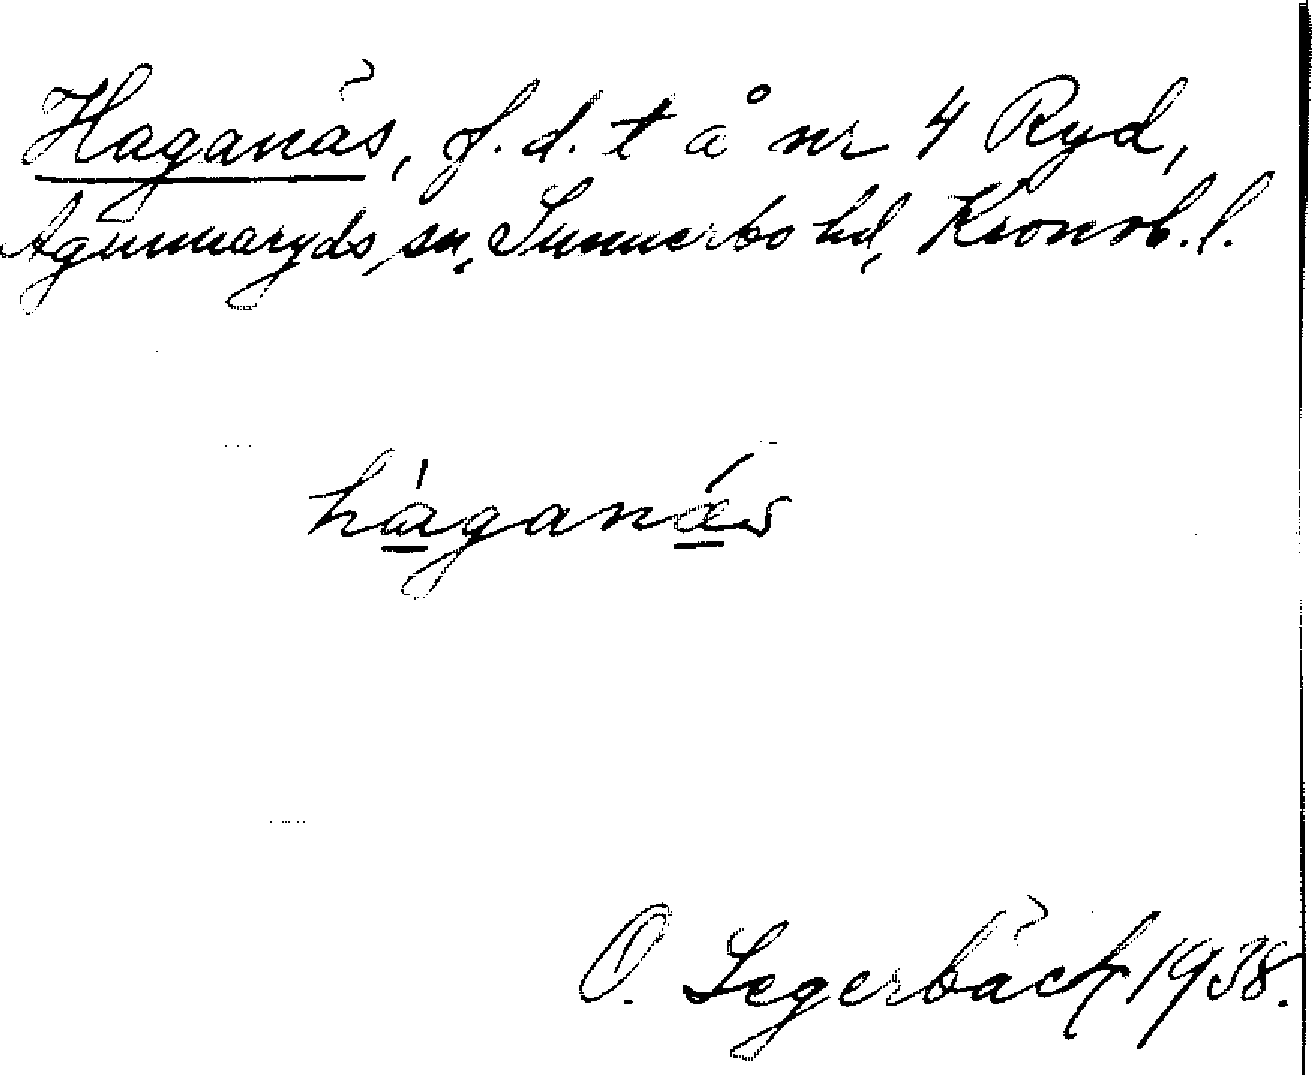 Haganäs, f. d. t å nr 4 Ryd,
Agunnaryds sn, Sunnerbo hd, Kronob. l.
háganǽs
O. Segerbäck 1938.